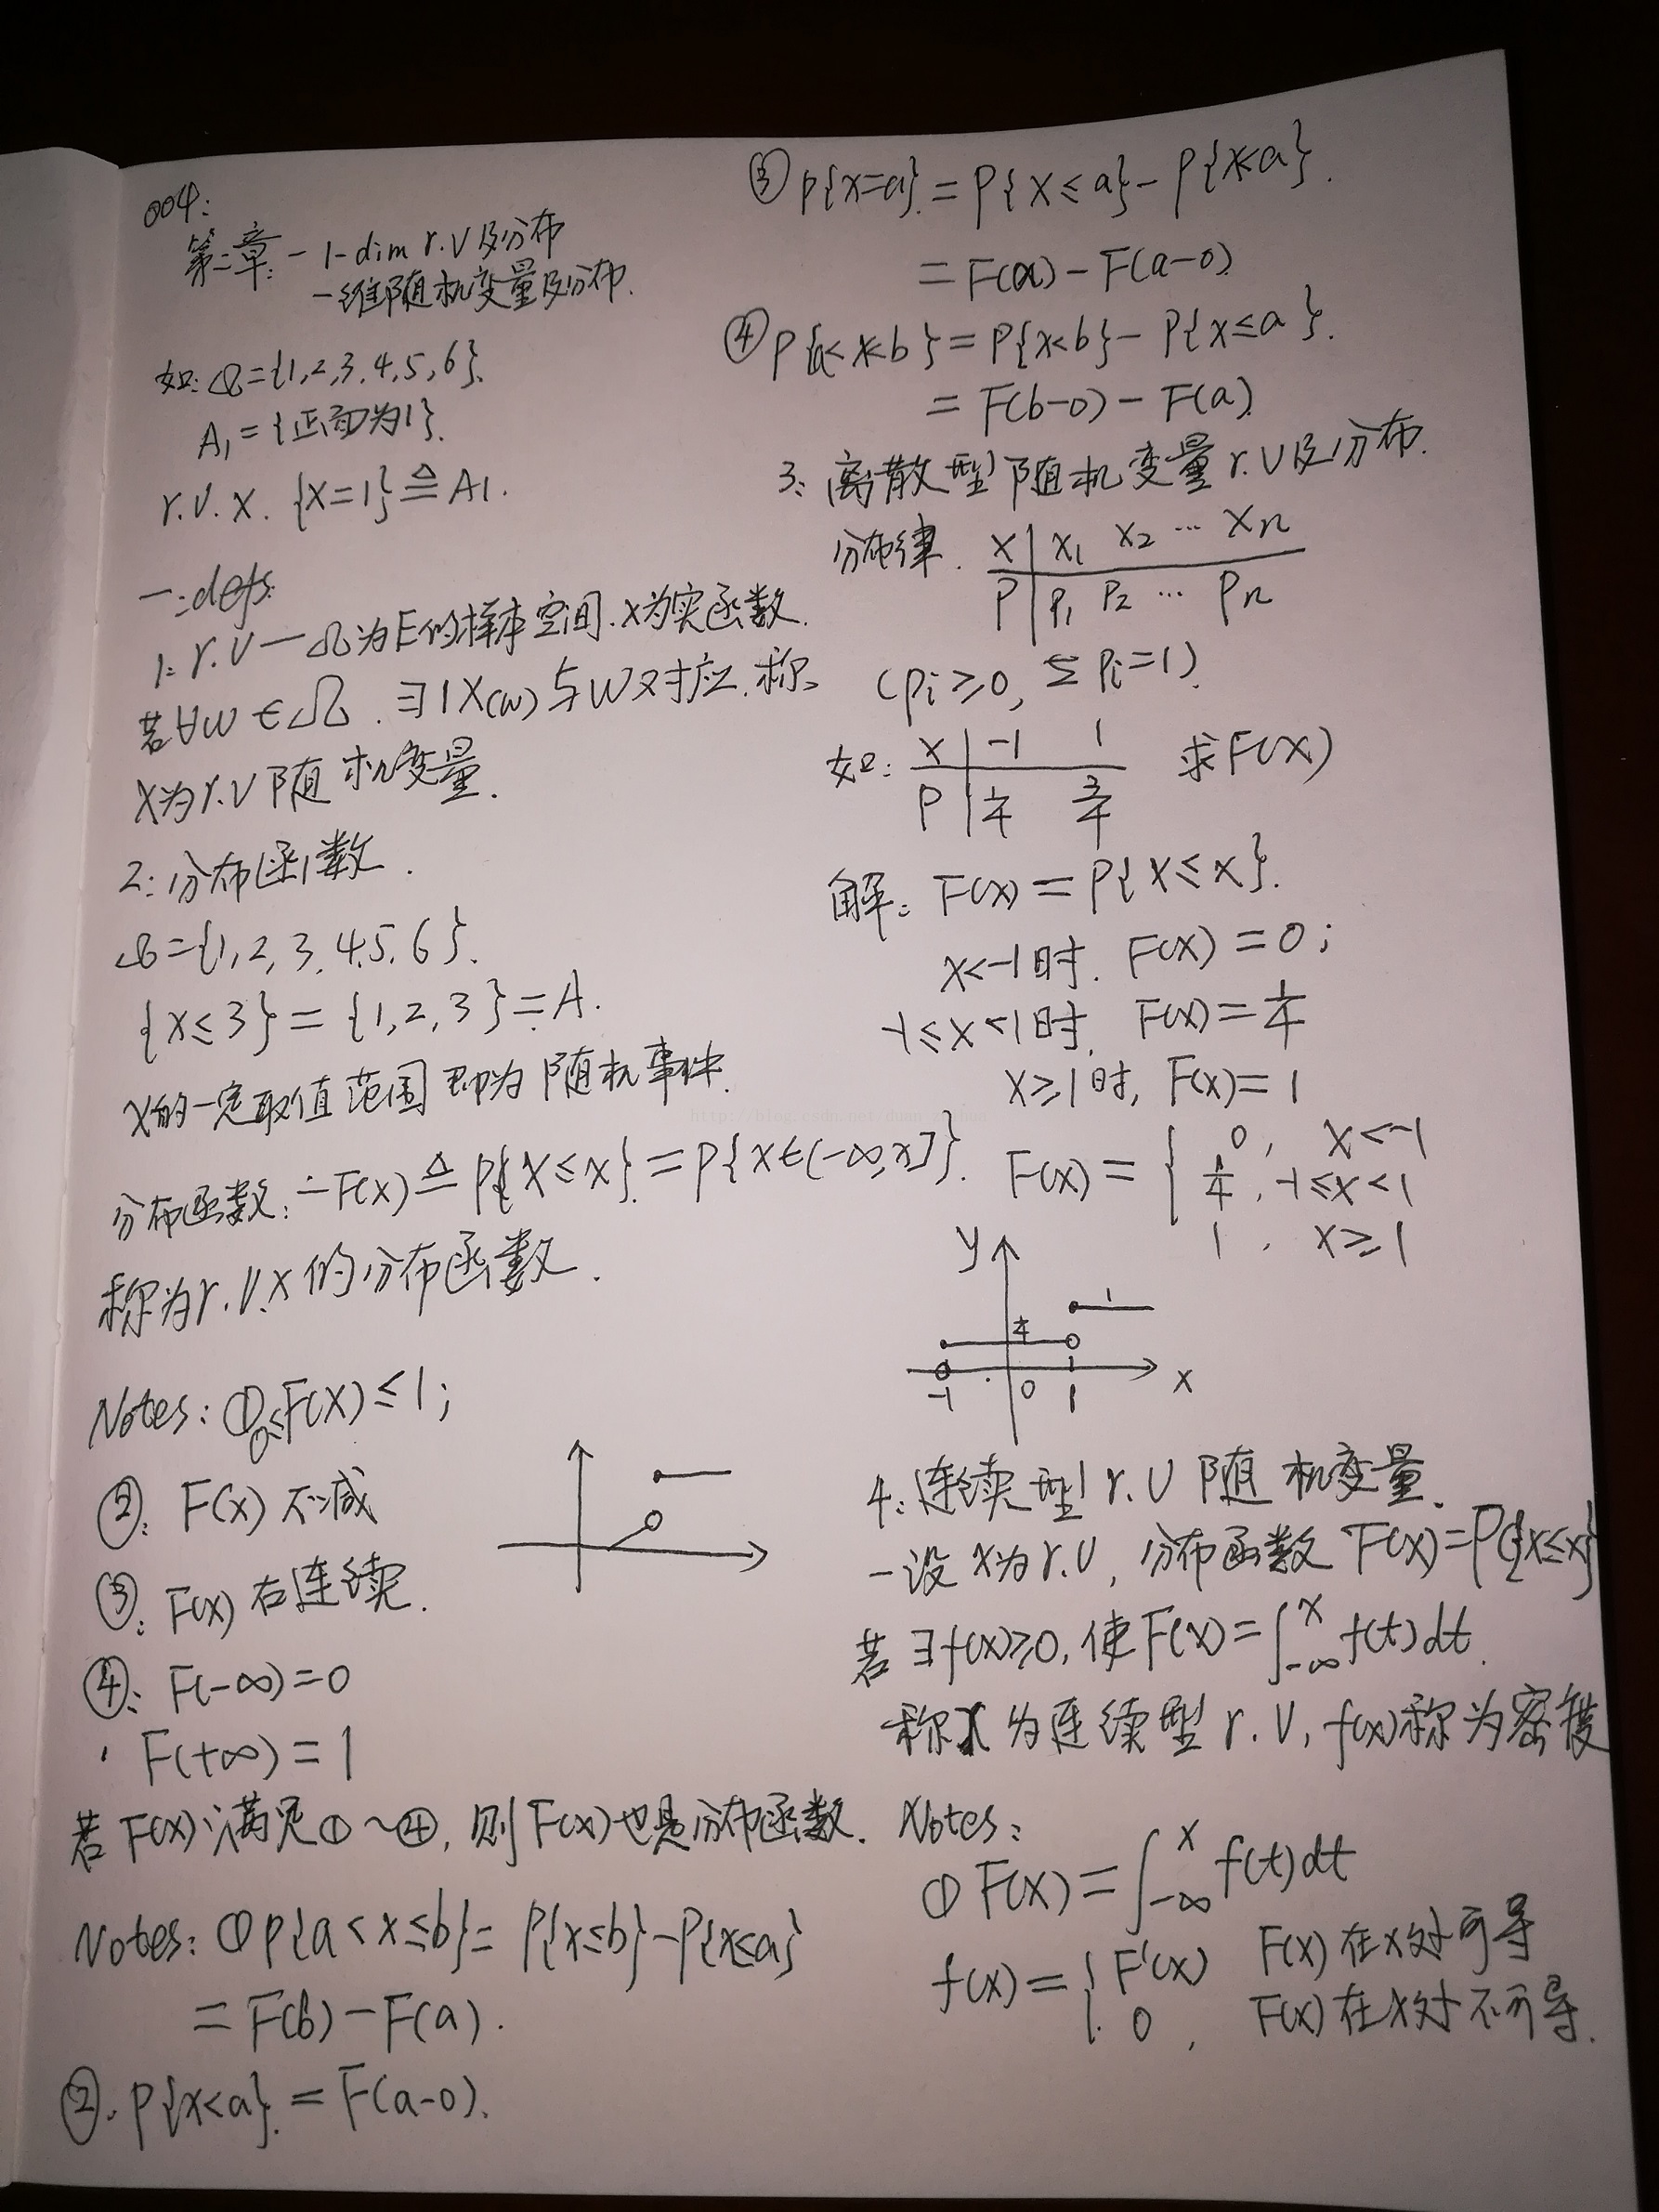 004:
第二章: — 1-dim r.V及分布
一维随机变量及分布.
如: Ω={1,2,3,4,5,6}.
A₁={正面为1}.
r.v. X. {X=1}≜A₁.
一:defs.
1: r.v — Ω为E的样本空间. X为实函数.
若∀w∈Ω. ∃1X(w)与w对应. 称
X为r.v随机变量.
2: 分布函数.
Ω={1,2,3,4,5,6}.
{X≤3}={1,2,3}=A.
X的一定取值范围即为随机事件.
分布函数: —F(x)≜P{X≤x}=P{X∈(-∞,x]}.
称为r.v.X的分布函数.
Notes: ① 0≤F(x)≤1;
②: F(x)不减
③: F(x)右连续.
④: F(-∞)=0
F(+∞)=1
若F(x)满足①~④, 则F(x)也是分布函数.
Notes: ①P{a<x≤b}=P{x≤b}-P{x≤a}
=F(b)-F(a).
②. P{x<a}.=F(a-0).
③P{x=a}.=P{x≤a}-P{x<a}.
=F(a)-F(a-0)
④P{a<x<b}=P{x<b}-P{x≤a}.
=F(b-0)-F(a)
3: 离散型随机变量r.v及分布.
分布律. X | x₁ x₂ … xn
P | P₁ P₂ … Pn
(Pi≥0, Σ Pi=1)
如: X | -1 1 求F(X)
P | 1/4 3/4
解: F(x)=P{X≤x}.
x<-1时. F(x)=0;
-1≤x<1时. F(x)=1/4
x≥1时, F(x)=1
F(x)={ 0, x<-1
1/4, -1≤x<1
1, x≥1
y
1
1/4
-1 0 1 x
4: 连续型r.v随机变量.
—设X为r.v, 分布函数F(x)=P({X≤x}
若∃f(x)≥0, 使F(x)=∫_{-∞}^{x} f(t)dt.
称X为连续型r.v, f(x)称为密度
Notes:
①F(x)=∫_{-∞}^{x} f(t)dt
f(x)={ F'(x) F(x)在x处可导
0, F(x)在x处不可导.